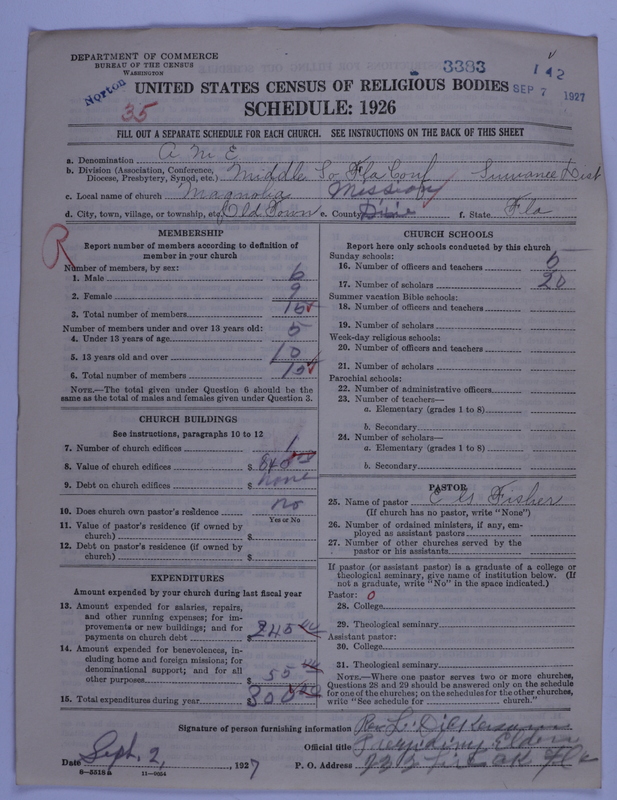 DEPARTMENT OF COMMERCE
BUREAU OF THE CENSUS
WASHINGTON
Norton
35
3383
142
SEP 7 1927
UNITED STATES CENSUS OF RELIGIOUS BODIES
SCHEDULE: 1926
FILL OUT A SEPARATE SCHEDULE FOR EACH CHURCH. SEE INSTRUCTIONS ON THE BACK OF THIS SHEET
a. Denomination A M E
b. Division (Association, Conference, Diocese, Presbytery, Synod, etc.) Middle So Fla Conf Suwanee Dist
c. Local name of church Magnolia Mission
d. City, town, village, or township, etc. Old Town e. County Dixie f. State Fla
R
MEMBERSHIP
Report number of members according to definition of
member in your church
Number of members, by sex:
1. Male 6
2. Female 9
3. Total number of members 15
Number of members under and over 13 years old:
4. Under 13 years of age 5
5. 13 years old and over 10
6. Total number of members 15
NOTE.—The total given under Question 6 should be
same as the total of males and females given under Question 3.
CHURCH BUILDINGS
See instructions, paragraphs 10 to 12
7. Number of church edifices 1
8. Value of church edifices $
9. Debt on church edifices $ none
10. Does church own pastor's residence no
Yes or No
11. Value of pastor's residence (if owned by
church) $
12. Debt on pastor's residence (if owned by
church) $
EXPENDITURES
Amount expended by your church during last fiscal year
13. Amount expended for salaries, repairs,
and other running expenses; for im-
provements or new buildings; and for
payments on church debt $ 245
14. Amount expended for benevolences, in-
cluding home and foreign missions; for
denominational support; and for all
other purposes $ 55
15. Total expenditures during year $ 300
CHURCH SCHOOLS
Report here only schools conducted by this church
Sunday schools:
16. Number of officers and teachers 5
17. Number of scholars 20
Summer vacation Bible schools:
18. Number of officers and teachers
19. Number of scholars
Week-day religious schools:
20. Number of officers and teachers
21. Number of scholars
Parochial schools:
22. Number of administrative officers
23. Number of teachers—
a. Elementary (grades 1 to 8)
b. Secondary
24. Number of scholars—
a. Elementary (grades 1 to 8)
b. Secondary
PASTOR
25. Name of pastor Fisher
(If church has no pastor, write "None")
26. Number of ordained ministers, if any, em-
ployed as assistant pastors
27. Number of other churches served by the
pastor or his assistants
If pastor (or assistant pastor) is a graduate of a college or
theological seminary, give name of institution below. (If
not a graduate, write "No" in the space indicated.)
Pastor: 0
28. College
29. Theological seminary
Assistant pastor:
30. College
31. Theological seminary
NOTE.—Where one pastor serves two or more churches,
Questions 28 and 29 should be answered only on the schedule
for one of the churches; on the schedules for the other churches,
write "See schedule for church."
Signature of person furnishing information Rev L.
Official title Presiding Elder
Date Sept. 2, 1927 P. O. Address Fla
8-5518a 11-9054